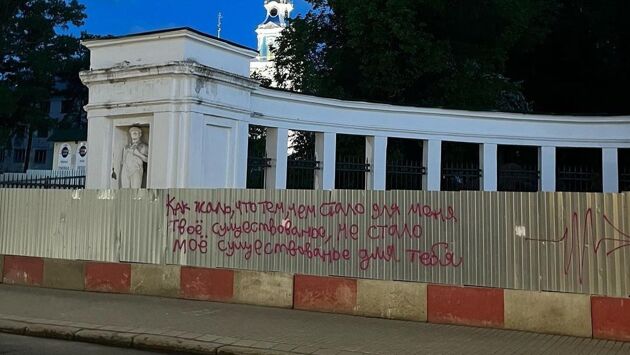 Как жаль, что тем, чем стало для меня
твоё существованье, не стало
моё существованье для тебя